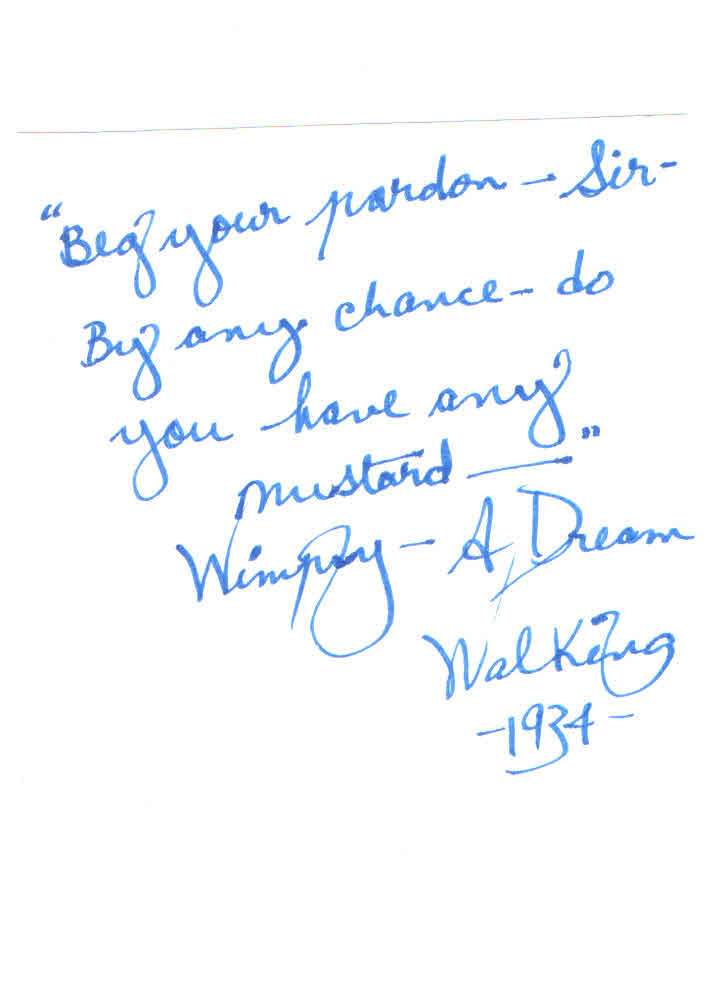 "Beg your pardon — Sir-
By any chance - do
you have any
mustard —"
Wimpy — A Dream
Walking
-1934-